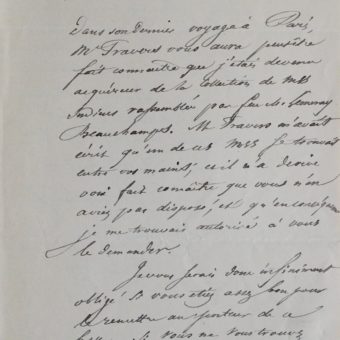 Dans son dernier voyage à Paris,
Mr Travers vous aura peutêtre
fait connaître que j'étais devenu
acquéreur de la collection de MSS
Indiens rassemblés par feu de
Beauchamps. M. Travers m'avait
écrit qu'un de ces MSS se trouvait
entre vos mains, et il m'a
fait connaître que vous n'en
aviez pas disposé, et qu'en conséquence
je me trouvais autorisé à vous
le demander.
Je vous serais donc infiniment
obligé si vous étiez assez bon pour
le remettre au porteur de ce
Si vous ne vous trouvez